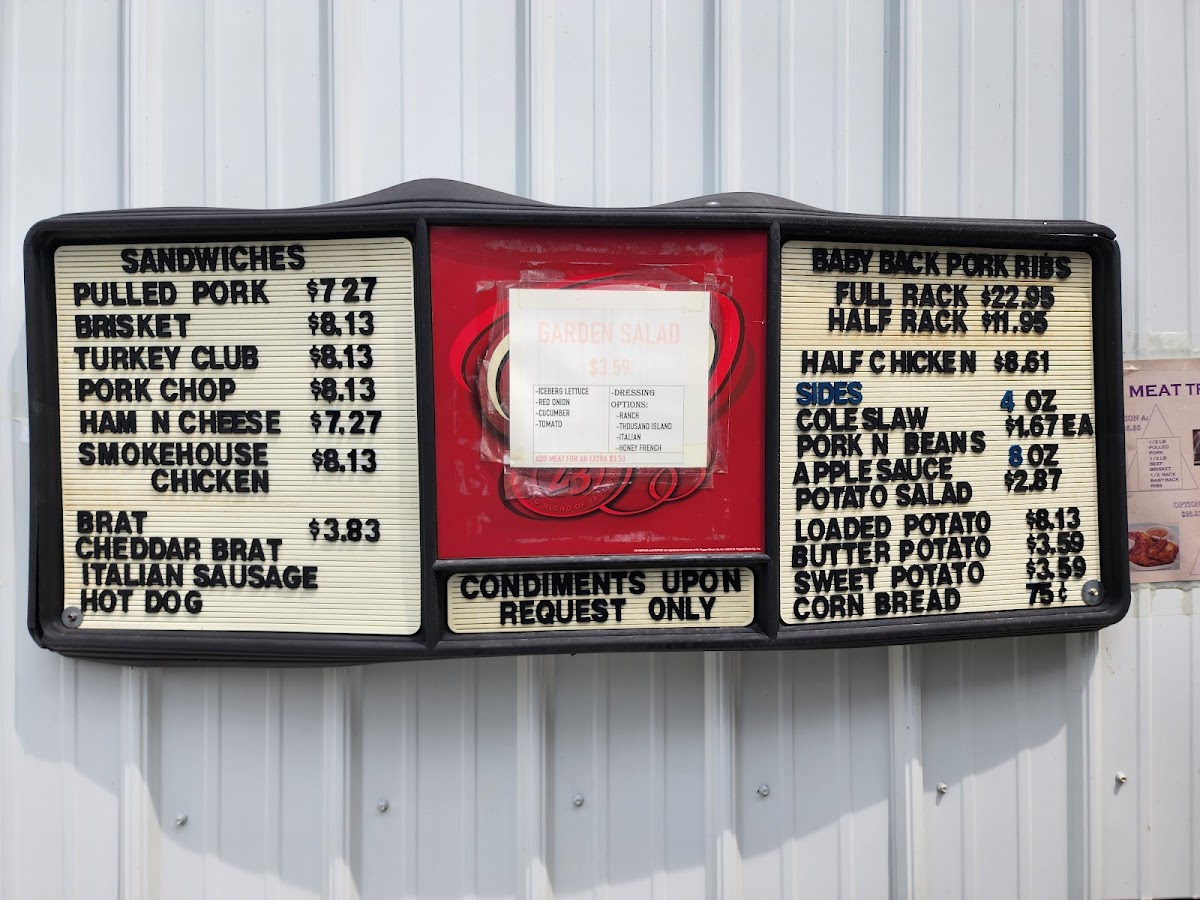 SANDWICHES
PULLED PORK $7 27
BRISKET $8.13
TURKEY CLUB $8.13
PORK CHOP $8.13
HAM N CHEESE $7.27
SMOKEHOUSE $8.13
CHICKEN
BRAT $3.83
CHEDDAR BRAT
ITALIAN SAUSAGE
HOT DOG
GARDEN SALAD
$3.59
-ICEBERG LETTUCE
-RED ONION
-CUCUMBER
-TOMATO
-DRESSING
OPTIONS:
-RANCH
-THOUSAND ISLAND
-ITALIAN
-HONEY FRENCH
ADD MEAT FOR AN EXTRA $3.50
23
BLEND OF
CONDIMENTS UPON
REQUEST ONLY
BABY BACK PORK RIBS
FULL RACK $22.95
HALF RACK $11.95
HALF CHICKEN $8.61
SIDES 4 OZ
COLE SLAW $1.67 EA
PORK N BEANS
APPLE SAUCE 8 OZ
POTATO SALAD $2.87
LOADED POTATO $8.13
BUTTER POTATO $3.59
SWEET POTATO $3.59
CORN BREAD 75¢
MEAT TR
1/2 LB
PULLED
PORK
1/2 LB
BEEF
BRISKET
1/2 RACK
BABY BACK
RIBS
OPTION